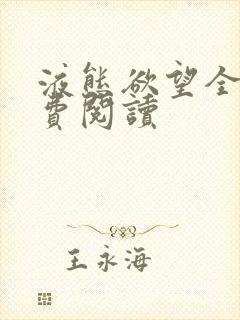 液態欲望全
費閱讀
王永海